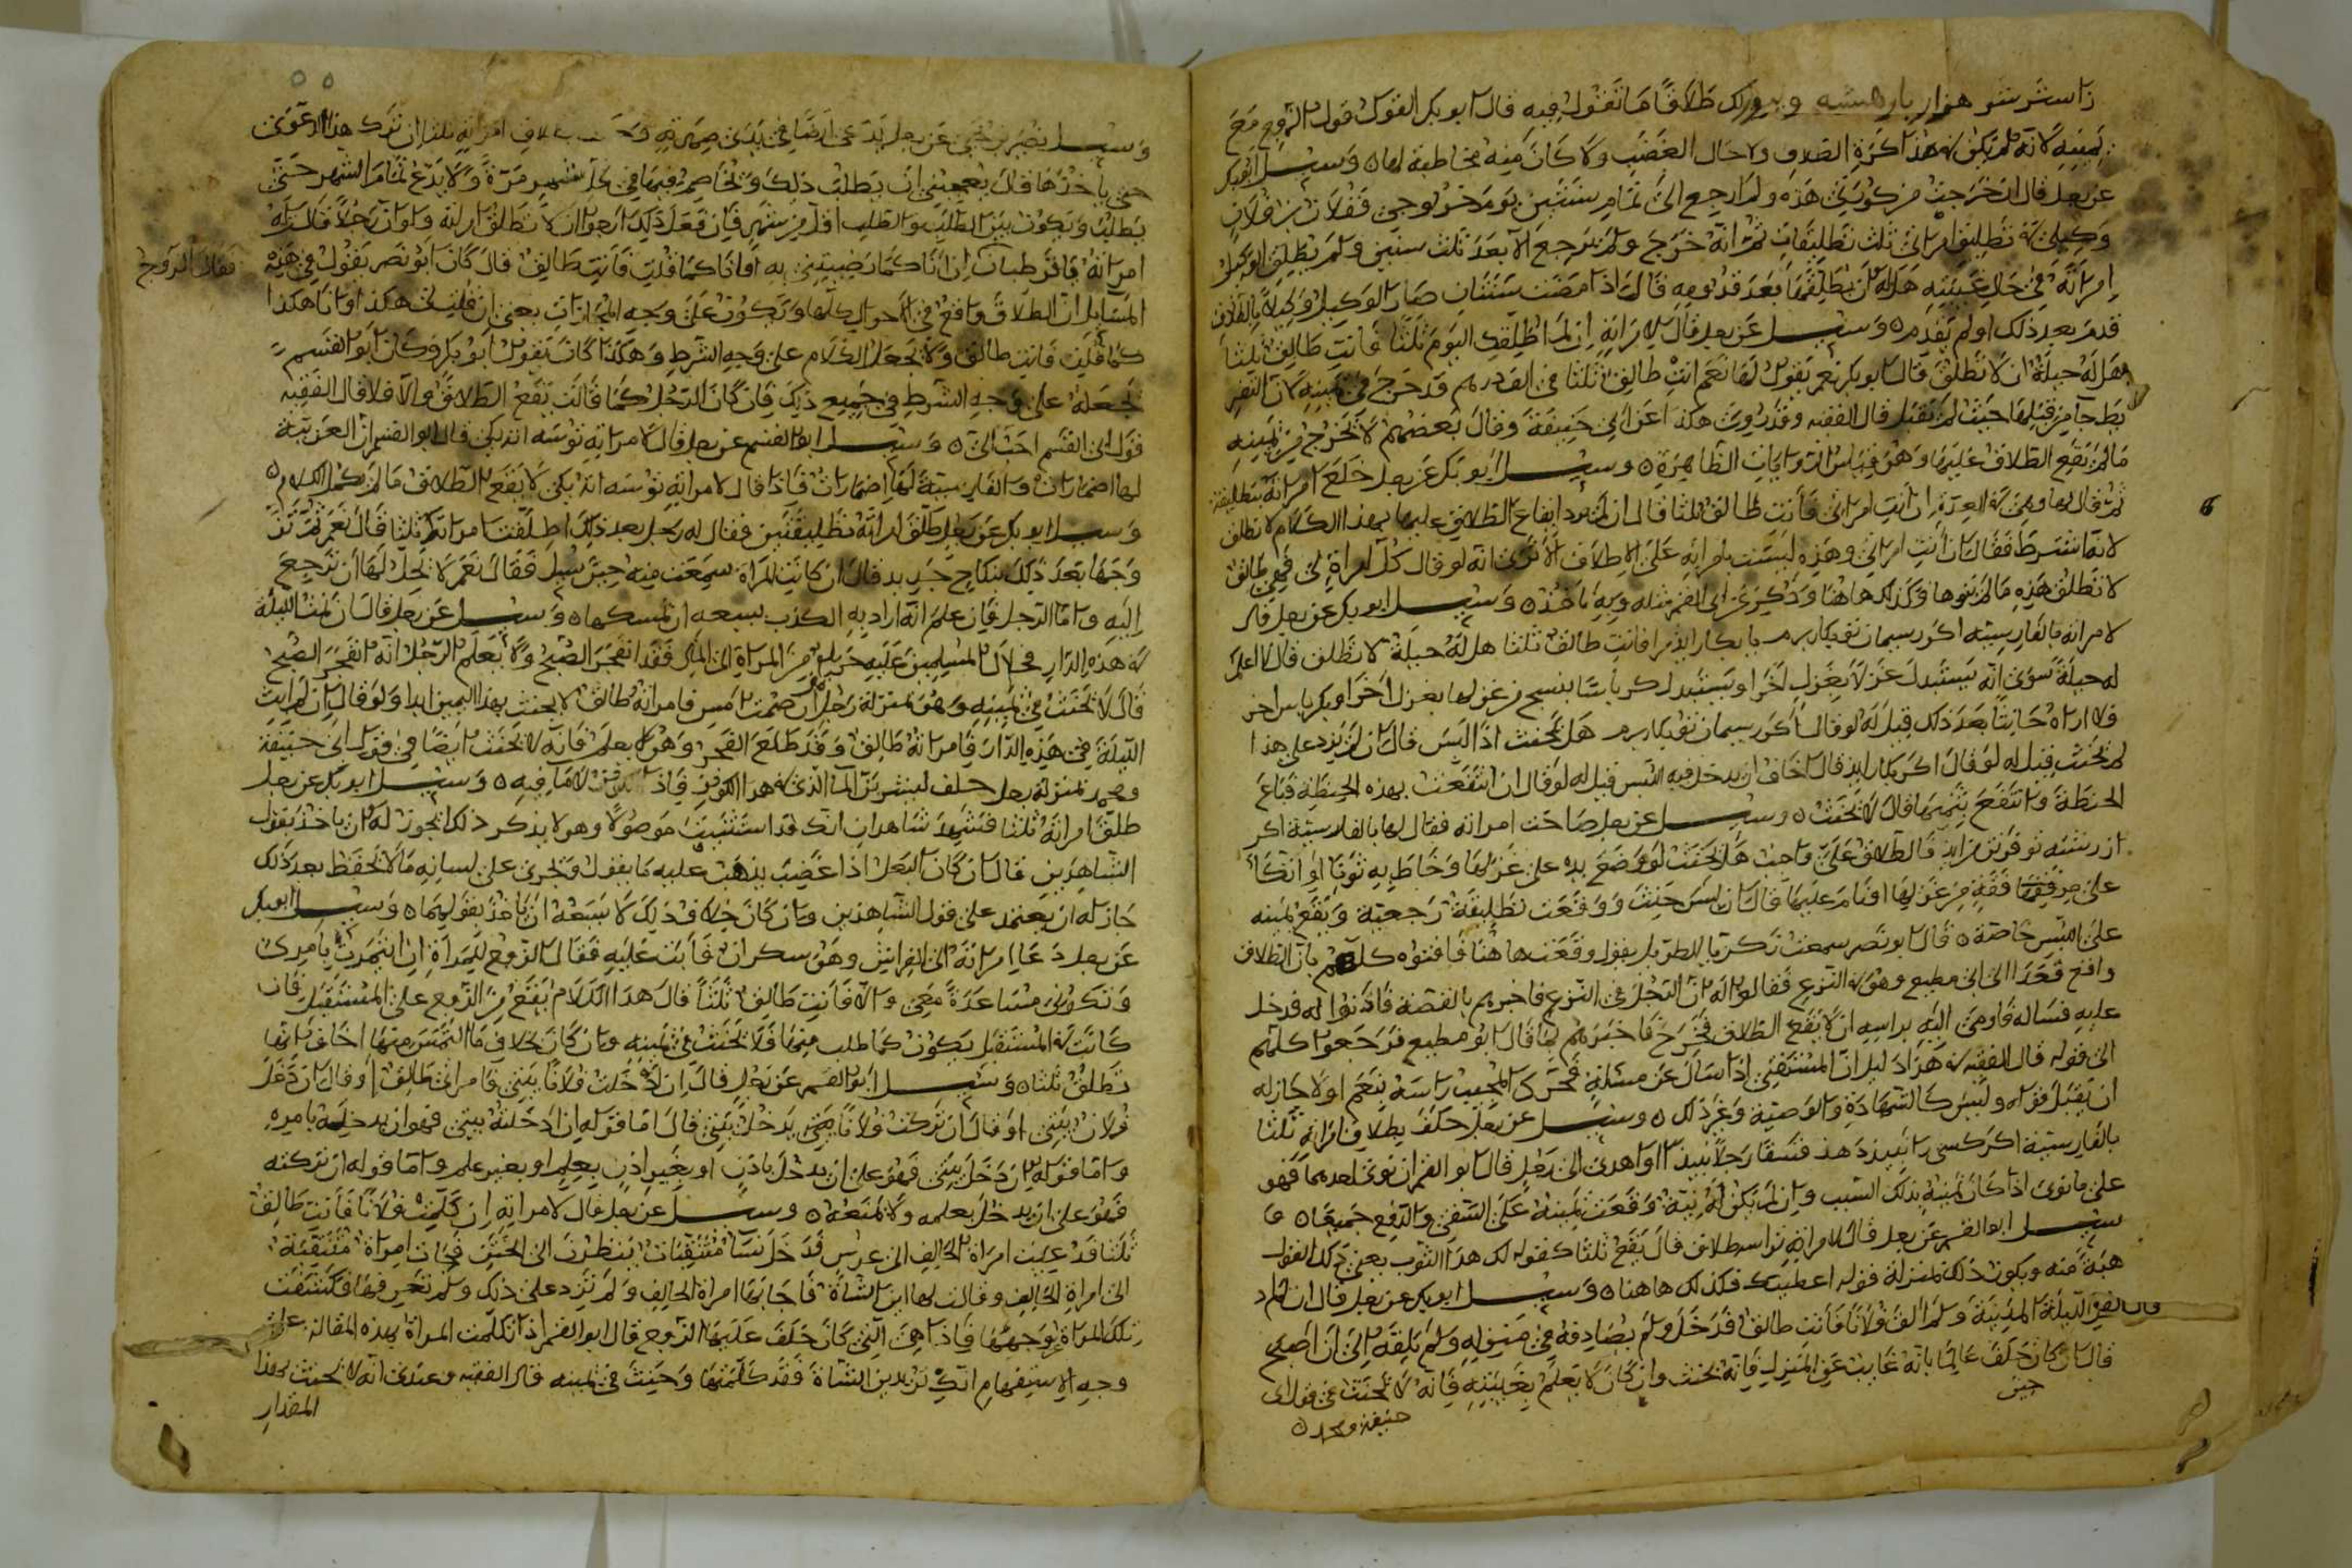 طلاقا ما تقول فيه قال ابو بكر القول قول الزوج مع
يمينه لانه لم يكن هذا مذاكرة الطلاق ولا حال الغضب ولا كان منه مخاطبة لها ه وسئل ابو بكر
عن رجل قال ان خرجت من هذه ولم ارجع الى تمام سنتين يوم خروجي ففلان بن فلان
وكيلي في تطليق امراتي ثلث تطليقات ثم انه خرج ولم يرجع الا بعد ثلث سنين ولم يطلق الوكيل
امراته في حال غيبته هل له ان يطلقها بعد قدومه قال اذا مضت سنتان صار الوكيل وكيلا بالطلاق
قدم بعد ذلك او لم يقدم ه وسئل عن رجل قال لامراته ان لم اطلقك اليوم ثلثا فانت طالق ثلثا
هل له حيلة ان لا تطلق قال ابو بكر نعم يقول لها نعم انت طالق ثلثا على الف درهم قد خرج من يمينه
قبلها حيث لم تقبل قال الفقيه وقد رويت هكذا عن ابي حنيفة وقال بعضهم لا يخرج من يمينه
ما لم يقع الطلاق عليها وهو قياس الروايات الظاهرة ه وسئل ابو بكر عن رجل خلع امراته بتطليقة
ثم قال لها وهي في العدة ان انت امراتي فانت طالق ثلثا قال ان لم يرد ايقاع الطلاق عليها بهذا الكلام لا تطلق
لانه شرط فقال ان انت امراتي وهذه ليست بامراته على الاطلاق الا ترى انه لو قال كل امراة لي فهي طالق
لا تطلق هذه ما لم ينوها فكذلك هاهنا وذكر عن ابي القسم مثله وبه ناخذ ه وسئل ابو بكر عن رجل قال
لامراته بالفارسية اكر ريسمان تو بكار برم يا بكار ايذ مرا فانت طالق ثلثا هل له حيلة لا تطلق قال لا اعلم
له حيلة سوى انه يستبدل عن لا يغزل اخر او يستبدل كرباسا ينسج من غزلها بغزل اخر او بكرباس اخر
فلا اراه حانثا بعد ذلك قيل له لو قال اكر ريسمان تو بكار برم هل يحنث اذا لبس قال ان لم يزد على هذا
لم يحنث قيل له لو قال اكر بكار ايذ قال اخاف ان يدخل فيه اللبس قيل له لو قال ان انتفعت بهذه الحنطة فباع
الحنطة وانتفع بثمنها قال لا يحنث ه وسئل عن رجل صاحت امراته فقال لها بالفارسية اكر
از رشته تو فالطلاق علي واجب هل يحنث لو وضع يده على غزلها وخاط به ثوبا او اتكا
على مرفقة من غزلها او نام عليها قال ان لبس حنث ووقعت تطليقة رجعية ويقع يمينه
على اللبس خاصة ه قال ابو نصر سمعت يقول وقعت هاهنا فافتوه كلهم بان الطلاق
واقع الى ابي مطيع وهو في النزع فقالوا له ان الرجل في النزع فاخبرهم بالقصة فاذنوا له فدخل
عليه فساله فاومى اليه براسه ان لا يقع الطلاق فخرج فاخبرهم بما قال ابو مطيع فرجعوا كلهم
الى قوله قال الفقيه في هذا دليل ان المستفتي اذا سال عن مسئلة فحرك المجيب راسه بنعم او لا جاز له
ان يقبل قوله وليس كالشهادة والوصية وغير ذلك ه وسئل عن رجل حلف بطلاق امراته ثلثا
بالفارسية اكر كسى را نبيذ دهذ فسقا رجلا نبيذا او اهدى الى رجل قال ابو القسم ان نوى احدهما فهو
على ما نوى اذا كان يمينه بذلك السبب وان لم يكن له نية وقعت يمينه على السقي والدفع جميعا ه و
سئل ابو القسم عن رجل قال لامراته ترا سه طلاق قال يقع ثلثا كقوله لك هذا الثوب يعني ذلك القول
هبة منه ويكون ذلك بمنزلة قوله اعطيتك فكذلك هاهنا ه وسئل ابو بكر عن رجل قال ان لم ادخل
الليلة المدينة ولم الق فلانا فانت طالق فدخل ولم يصادفه في منزله ولم يلقه الى ان اصبح
قال ان كان حلف عالما بانه غايب عن المنزل فانه يحنث وان كان لا يعلم بغيبته فانه لا يحنث في قول ابي
حنيفة ومحمد ه
وسئل نصير بن يحيى عن رجل يدعي ارضا في يدي صهرته امراته ثلثا ان ترك هذا الدعوى
حتى ياخذها قال يعجبني ان يطلب ذلك ويخاصم فيها في كل شهر مرة ولا يدع تمام الشهر حتى
يطلب ويكون بين الطلب والطلب اقل من شهر فان فعل ذلك ارجو ان لا تطلق امراته ولو ان رجلا قالت له
امراته فقال الزوج ان انا كما فانت طالق قال كان ابو نصر يقول في هذه
المسايل ان الطلاق واقع في الاحوال كلها ويكون على وجه المجازات يعني ان قلت لي هكذا وانا هكذا
كما قلت فانت طالق ولا يجعل الكلام على وجه الشرط وهكذا كان يقول ابو بكر وكان ابو القسم
يجعله على وجه الشرط في جميع ذلك فان كان الرجل كما قالت يقع الطلاق والا فلا قال الفقيه
قول ابي القسم احب الي ه وسئل ابو القسم عن رجل قال لامراته قال ابو القسم ان العربية
لها اضمارات والفارسية لها اضمارات فاذا قال لامراته لا يقع الطلاق ما لم يكمل الكلام ه
وسئل ابو بكر عن رجل طلق امراته تطليقتين فقال له رجل بعد ذلك اطلقت امراتك ثلثا قال نعم ثم تز
وجها بعد ذلك بنكاح جديد قال ان كانت المراة سمعت منه حين سئل فقال نعم لا يحل لها ان ترجع
اليه واما الرجل فان علم انه اراد به الكذب يسعه ان يمسكها ه وسئل عن رجل قال ان نمت الليلة
في هذه الدار فحلال المسلمين عليه حرام من المراة الى المال فقد انفجر الصبح ولا يعلم الرجل انه انفجر الصبح
قال لا يحنث في يمينه وهو بمنزلة رجل قال ان صمت امس فامراته طالق لا يحنث بهذا اليمين ابدا ولو قال ان لم ابت
الليلة في هذه الدار فامراته طالق وقد طلع الفجر وهو لا يعلم فانه لا يحنث ايضا في قول ابي حنيفة
ومحمد بمنزلة رجل حلف ليشربن الماء الذي في هذا الكوز فاذا لا ما فيه ه وسئل ابو بكر عن رجل
طلق امراته ثلثا فشهد شاهدان انك قد استثنيت موصولا وهو لا يذكر ذلك ايجوز له ان ياخذ بقول
الشاهدين قال ان كان الرجل اذا غضب يذهب عليه ما يقول ويجري على لسانه ما لا يحفظ بعد ذلك
جاز له ان يعتمد على قول الشاهدين وان كان خلاف ذلك لا يسعه ان ياخذ بقولهما ه وسئل ابو بكر
عن رجل دعا امراته الى الفراش وهو سكران فابت عليه فقال الزوج للمراة ان ائتمرت بامري
وتكوني مساعدة معي والا فانت طالق ثلثا قال هذا الكلام يقع من الزوج على المستقبل فان
كانت في المستقبل يكون كما طلب منها فلا يحنث في يمينه وان كان خلاف ما التمس منها اخاف انها
تطلق ثلثا ه وسئل ابو القسم عن رجل قال ان ادخلت فلانا بيتي فامراتي طالق او قال ان دخل
فلان بيتي او قال ان تركت فلانا يدخل بيتي قال اما قوله ان ادخلته بيتي فهو ان يدخله بامره
واما قوله ان دخل بيتي فهو على ان يدخل باذن او بغير اذن بعلم او بغير علم واما قوله ان تركته
فهو على ان يدخل بعلمه ولا يمنعه ه وسئل عن رجل قال لامراته ان كلمت فلانا فانت طالق
ثلثا امراة الحالف الى عرس فدخل نسا متنقبات ينظرن الى الختن فجات امراة متنقبة
الى امراة الحالف وقالت لها ابن الشاة فاجابتها امراة الحالف ولم تزد على ذلك ولم تعرفها فكشفت
تلك المراة وجهها فاذا هي التي كان حلف عليها الزوج قال ابو القسم اذا تكلمت المراة بهذه المقالة على
وجه الاستفهام انك تريدين الشاة فقد كلمتها وحنث في يمينه قال الفقيه وعندي انه لا يحنث بهذا
المقدار